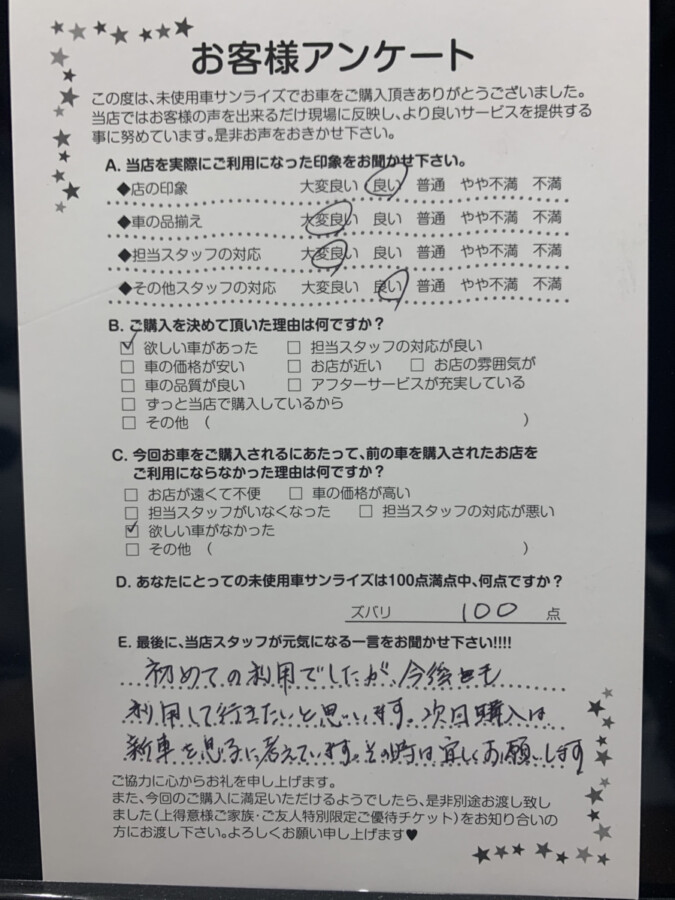 お客様アンケート
この度は、未使用車サンライズでお車をご購入頂きありがとうございました。
当店ではお客様の声を出来るだけ現場に反映し、より良いサービスを提供する
事に努めています。是非お声をおきかせ下さい。
A. 当店を実際にご利用になった印象をお聞かせ下さい。
◆店の印象 大変良い 良い 普通 やや不満 不満
◆車の品揃え 大変良い 良い 普通 やや不満 不満
◆担当スタッフの対応 大変良い 良い 普通 やや不満 不満
◆その他スタッフの対応 大変良い 良い 普通 やや不満 不満
B. ご購入を決めて頂いた理由は何ですか？
☑ 欲しい車があった □ 担当スタッフの対応が良い
□ 車の価格が安い □ お店が近い □ お店の雰囲気が
□ 車の品質が良い □ アフターサービスが充実している
□ ずっと当店で購入しているから
□ その他 （ ）
C. 今回お車をご購入されるにあたって、前の車を購入されたお店を
ご利用にならなかった理由は何ですか？
□ お店が遠くて不便 □ 車の価格が高い
□ 担当スタッフがいなくなった □ 担当スタッフの対応が悪い
☑ 欲しい車がなかった
□ その他 （ ）
D. あなたにとっての未使用車サンライズは100点満点中、何点ですか？
ズバリ 100 点
E. 最後に、当店スタッフが元気になる一言をお聞かせ下さい!!!!
初めての利用でしたが、今後とも
利用して行きたいと思います。次回購入は
新車を 考えています。その時は宜しくお願いします
ご協力に心からお礼を申し上げます。
また、今回のご購入に満足いただけるようでしたら、是非別途お渡し致し
ました（上得意様ご家族・ご友人特別限定ご優待チケット）をお知り合いの
方にお渡し下さい。よろしくお願い申し上げます♥